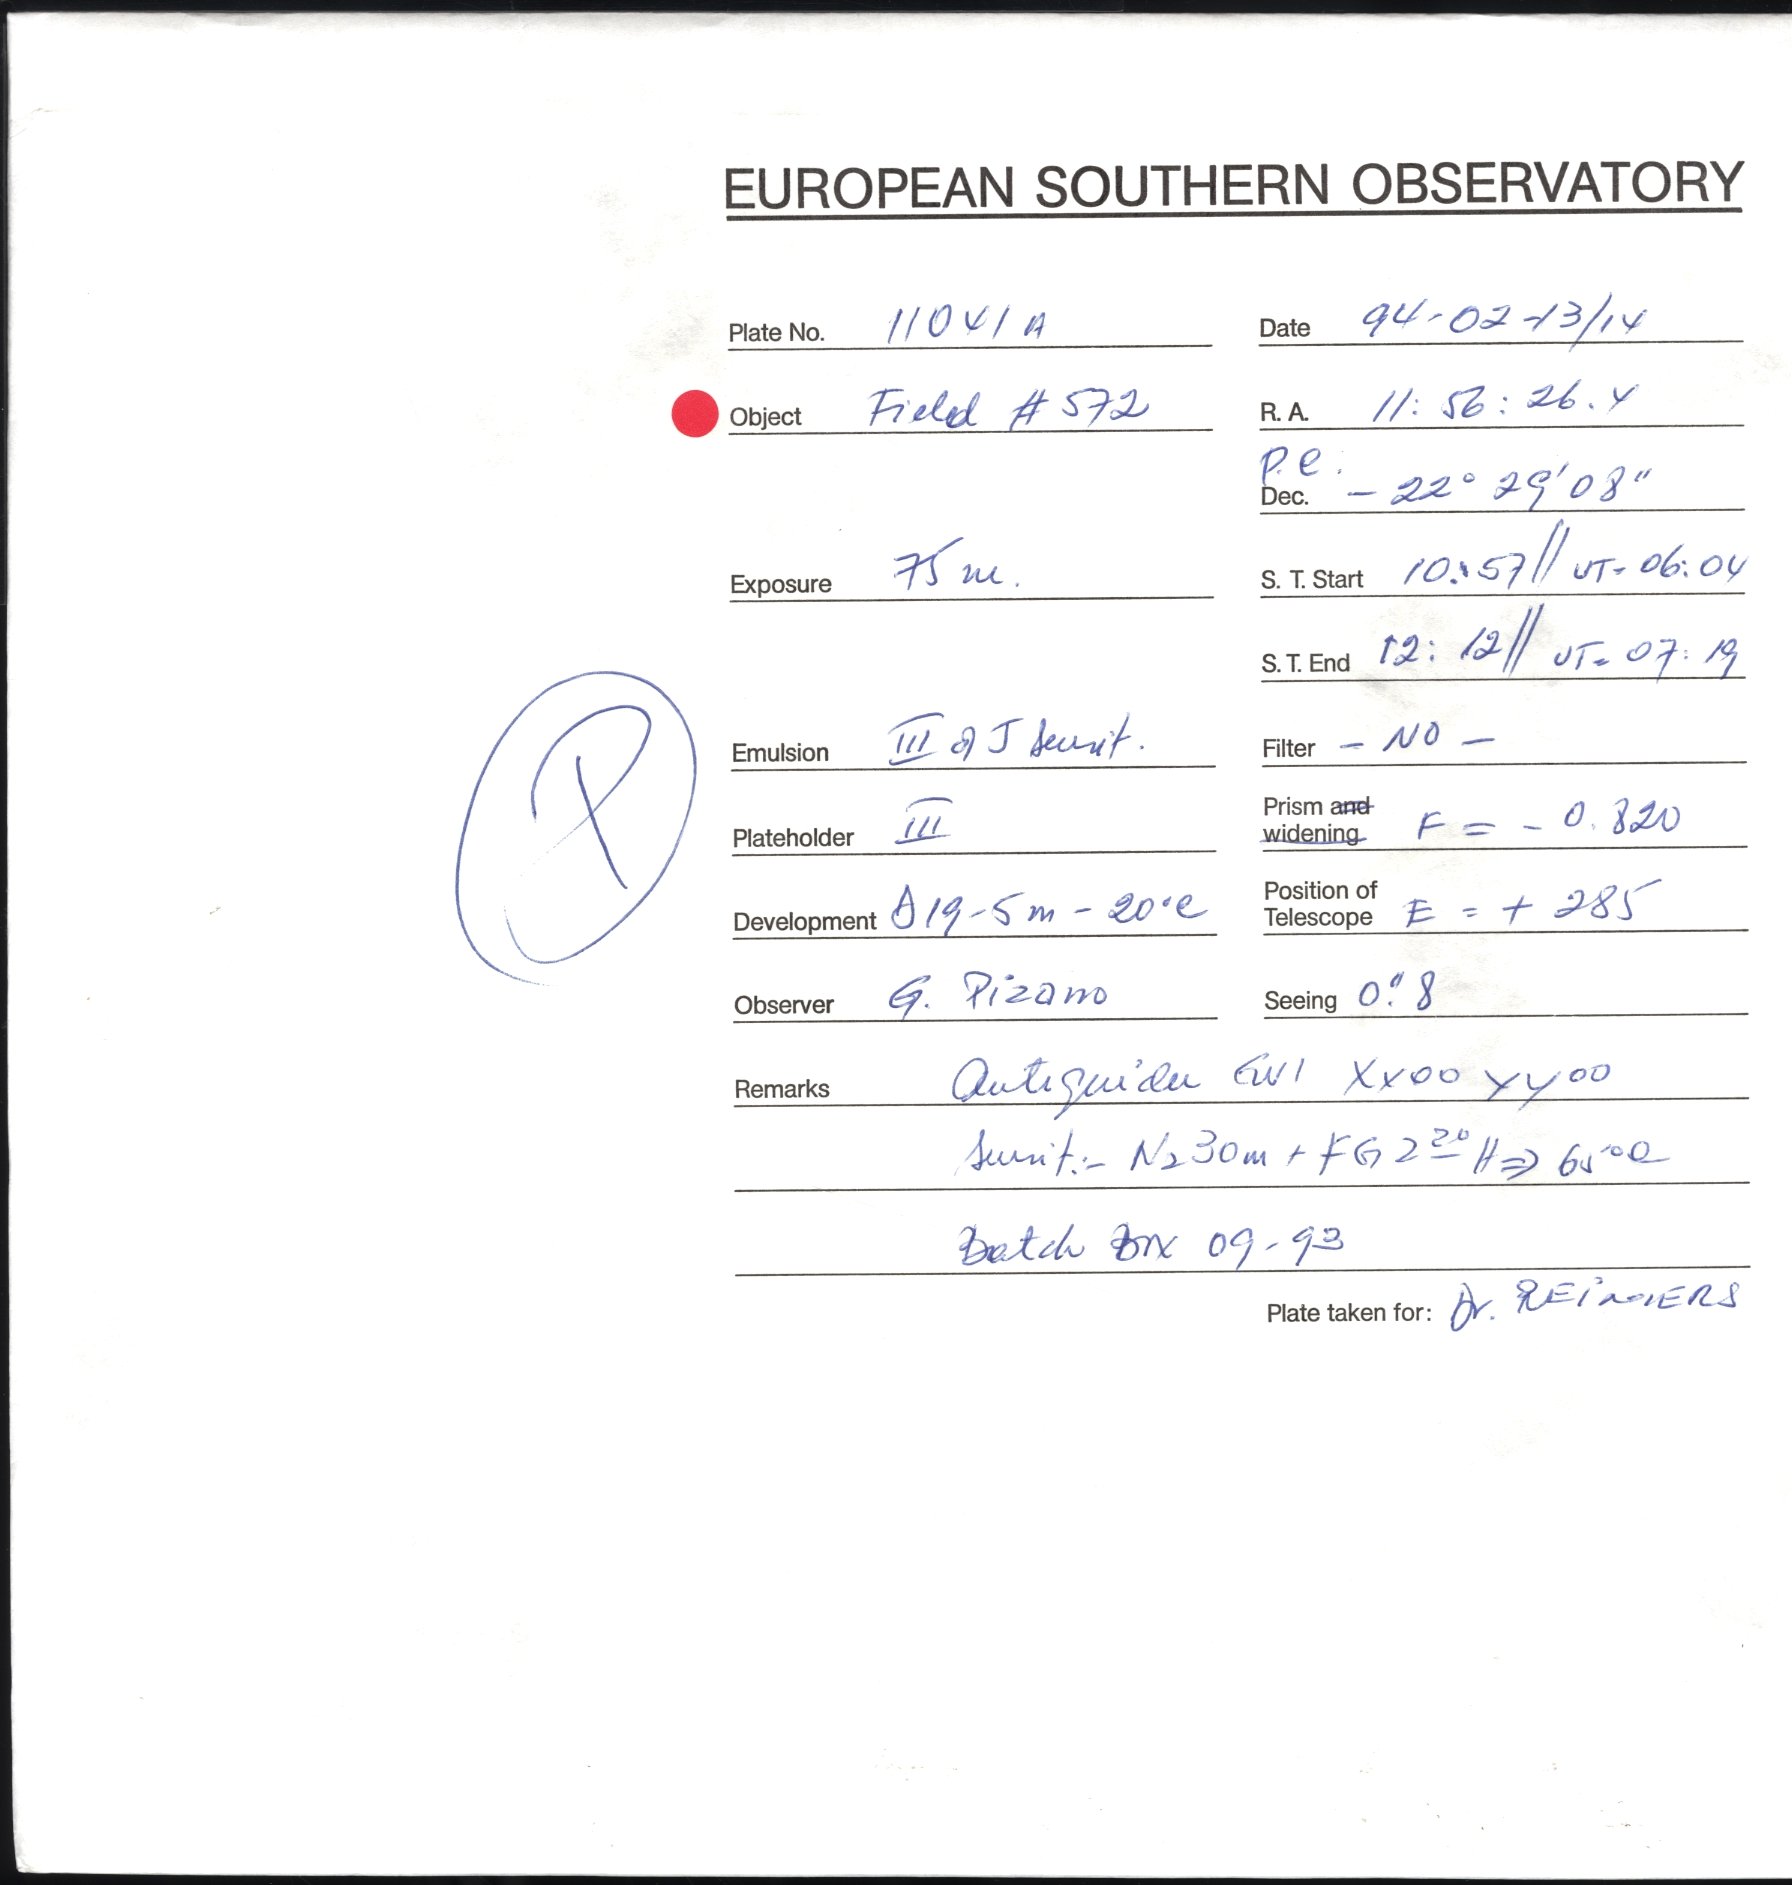 EUROPEAN SOUTHERN OBSERVATORY
Plate No. 11041 A Date 94-02-13/14
Object Field # 572 R. A. 11: 56: 26.4
P.C.
Dec. - 22° 29' 08"
Exposure 75 m. S. T. Start 10:57// UT= 06:04
S. T. End 12: 12// UT= 07:19
P
Emulsion III a J sensit. Filter - NO -
Plateholder III Prism and widening F = - 0.820
Development D19-5m - 20°C Position of Telescope E = + 285
Observer G. Pizarro Seeing 0".8
Remarks Autoguider GW1 Xx00 Yy00
Sensit.- N2 30m + FG 2 20 H => 65°C
Batch Box 09-93
Plate taken for: Dr. REIMERS